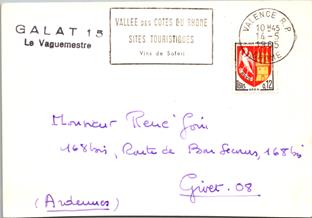 GALAT 15
Le Vaguemestre
VALLÉE DES COTES DU RHONE
SITES TOURISTIQUES
Vins de Soleil
VALENCE R.P.
10H45
14-5
1965
DROME
0,12
Monsieur René
168bis, Route de Bon Secours, 168bis
Givet. 08
(Ardennes)